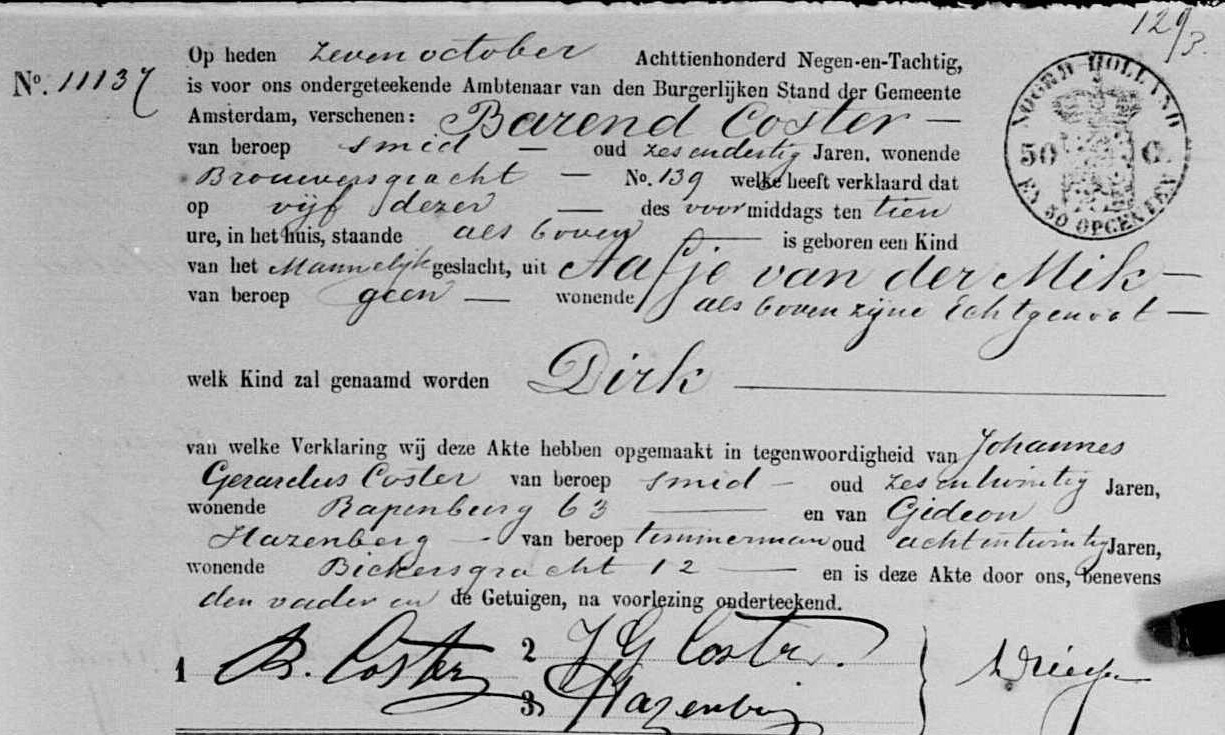 129/3.
Op heden zeven october Achttienhonderd Negen-en-Tachtig,
No. 11137
is voor ons ondergeteekende Ambtenaar van den Burgerlijken Stand der Gemeente
Amsterdam, verschenen: Barend Coster —
van beroep smid — oud zesendertig Jaren, wonende
Brouwersgracht — No. 139 welke heeft verklaard dat
op vijf dezer — des voormiddags ten tien
ure, in het huis, staande als boven — is geboren een Kind
van het Mannelijk geslacht, uit Aafje van der Mik —
van beroep geen — wonende als boven zijne Echtgenoot —
welk Kind zal genaamd worden Dirk —
van welke Verklaring wij deze Akte hebben opgemaakt in tegenwoordigheid van Johannes
Gerardus Coster van beroep smid — oud zesentwintig Jaren,
wonende Rapenburg 63 — en van Gideon
Hazenberg — van beroep timmerman oud achtentwintig Jaren,
wonende Bickersgracht 12 — en is deze Akte door ons, benevens
den vader en de Getuigen, na voorlezing onderteekend.
1 B. Coster
2 J G Coster.
3 Hazenberg
NOORD-HOLLAND
50 C.
EN 50 OPCENTEN